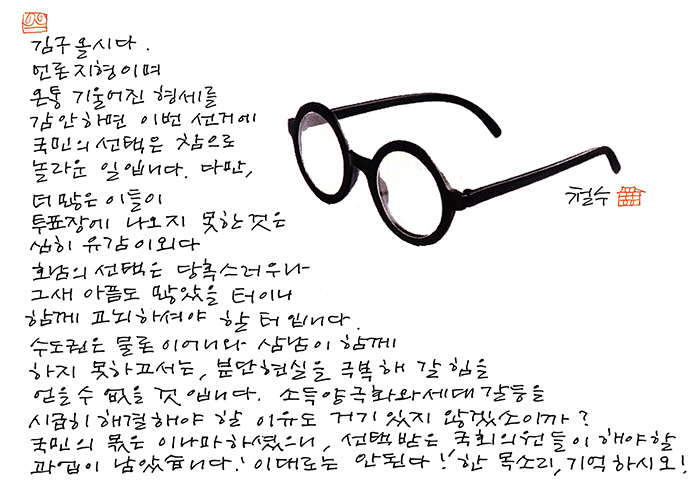 김구올시다.
언론지형이며
온통 기울어진 형세를
감안하면 이번 선거에
국민의 선택은 참으로
놀라운 일입니다. 다만,
더 많은 이들이
투표장에 나오지 못한 것은
심히 유감이외다
호남의 선택은 당혹스러우나
그새 아픔도 많았을 터이니
함께 고뇌하셔야 할 터입니다.
수도권은 물론이어니와 삼남이 함께
하지 못하고서는, 분단현실을 극복해 갈 힘을
얻을 수 없을 것입니다. 소득양극화와 세대갈등을
시급히 해결해야 할 이유도 거기 있지 않겠소이까?
국민의 몫은 이나마 하셨으니, 선택받은 국회의원들이 해야할
과업이 남았습니다. '이대로는 안된다!' 한 목소리, 기억하시오!
철수